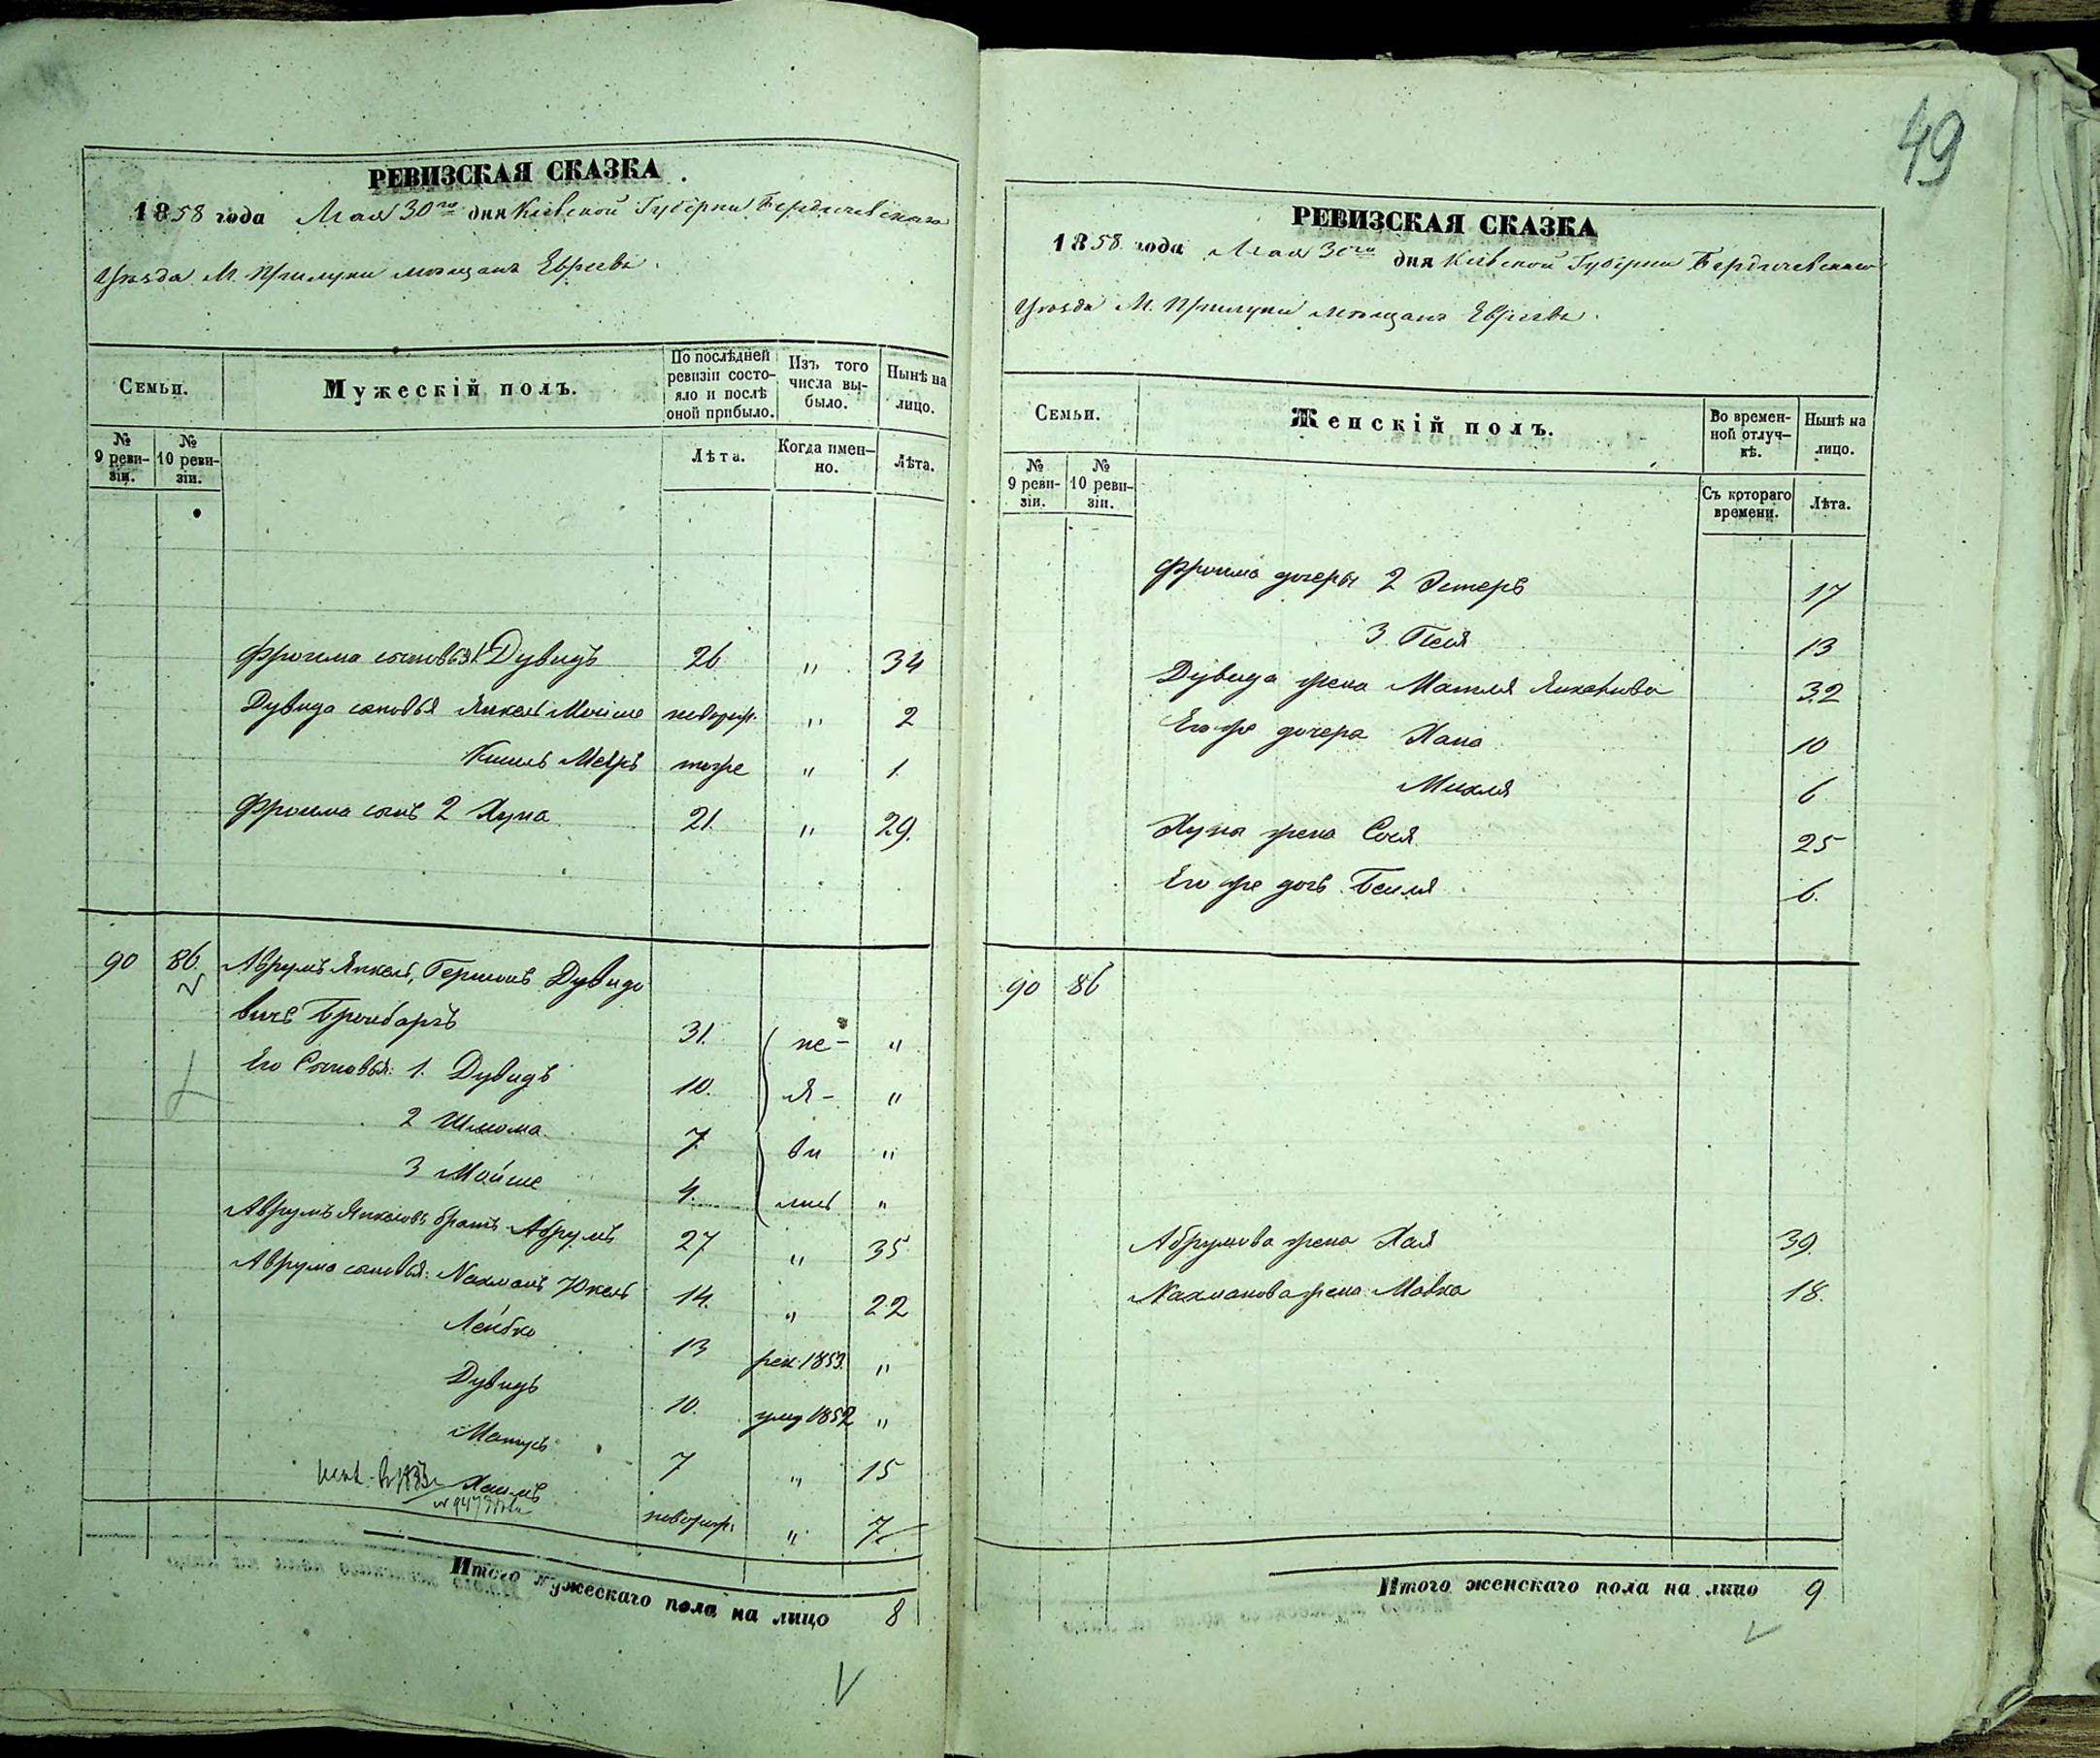 РЕВИЗСКАЯ СКАЗКА
1858 года Мая 30го дня Кіевской Губерніи Бердичевскаго
Уѣзда М. Прилуки мѣщанъ Евреевъ.
Семьи.
Мужескій полъ.
По послѣдней ревизіи состояло и послѣ оной прибыло.
Изъ того числа выбыло.
Нынѣ на лицо.
№ 9 ревизіи.
№ 10 ревизіи.
Лѣта.
Когда именно.
Лѣта.
Фроима сыновья 1 Дувидъ 26 " 34
Дувида сыновья Янкель Мойше новорож. " 2
Кисиль Мееръ тоже " 1.
Фроима сынъ 2 Хуна 21. " 29.
90 86. Аврумъ Янкель, Гершонъ Дувидо
вичъ 31. не- "
Его Сыновья: 1. Дувидъ 10. я- "
2 Шлома 7. ви "
3 Мойше 4. лись "
Аврумъ Янкеловъ братъ Абрумъ 27 " 35
Аврума сыновья: Нахманъ Юкель 14. " 22
Лейбко 13 рек. 1853. "
Дувидъ 10. умер 1852 "
Матусъ 7 " 15
Хаимъ новорож. " 7
Итого мужескаго пола на лицо 8
49
РЕВИЗСКАЯ СКАЗКА
1858 года Мая 30го дня Кіевской Губерніи Бердичевскаго
Уѣзда М. Прилуки мѣщанъ Евреевъ.
Семьи.
Женскій полъ.
Во временной отлучкѣ.
Нынѣ на лицо.
№ 9 ревизіи.
№ 10 ревизіи.
Съ котораго времени.
Лѣта.
Фроима дочери 2 Эстеръ 17
3 Песя 13
Дувида жена Матля 32
Его же дочери Хана 10
Михля 6
Хуны жена Сося 25
Его же дочь Бейля 6.
90 86
Абрумова жена Хая 39.
Нахманова жена Малка 18.
Итого женскаго пола на лицо 9